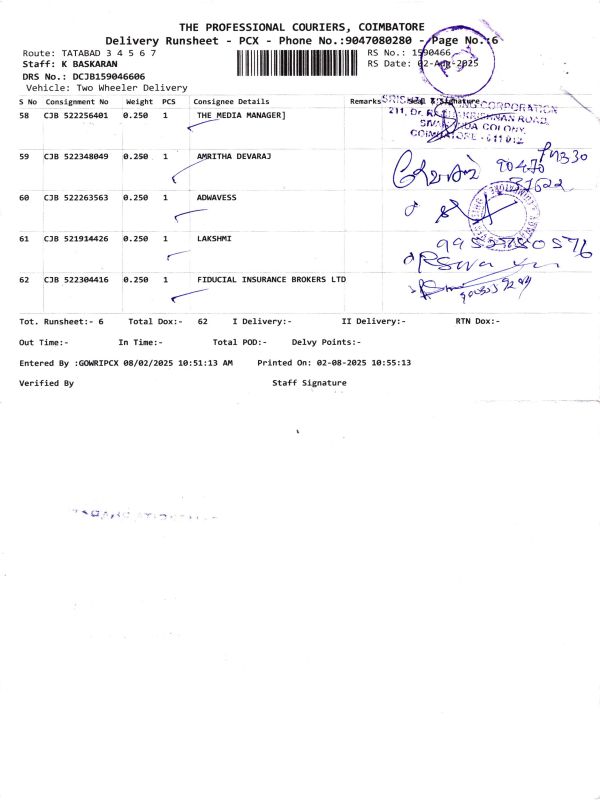 THE PROFESSIONAL COURIERS, COIMBATORE
Delivery Runsheet - PCX - Phone No.:9047080280 - Page No.:6
Route: TATABAD 3 4 5 6 7
RS No.: 1590466
Staff: K BASKARAN
RS Date: 02-Aug-2025
DRS No.: DCJB159046606
Vehicle: Two Wheeler Delivery
S No Consignment No Weight PCS Consignee Details Remarks Seal & Signature
58 CJB 522256401 0.250 1 THE MEDIA MANAGER]
CORPORATION
211, Dr.
COLONY,
59 CJB 522348049 0.250 1 AMRITHA DEVARAJ
90470
37622
60 CJB 522263563 0.250 1 ADWAVESS
61 CJB 521914426 0.250 1 LAKSHMI
9952750576
62 CJB 522304416 0.250 1 FIDUCIAL INSURANCE BROKERS LTD
Tot. Runsheet:- 6 Total Dox:- 62 I Delivery:- II Delivery:- RTN Dox:-
Out Time:- In Time:- Total POD:- Delvy Points:-
Entered By :GOWRIPCX 08/02/2025 10:51:13 AM Printed On: 02-08-2025 10:55:13
Verified By Staff Signature